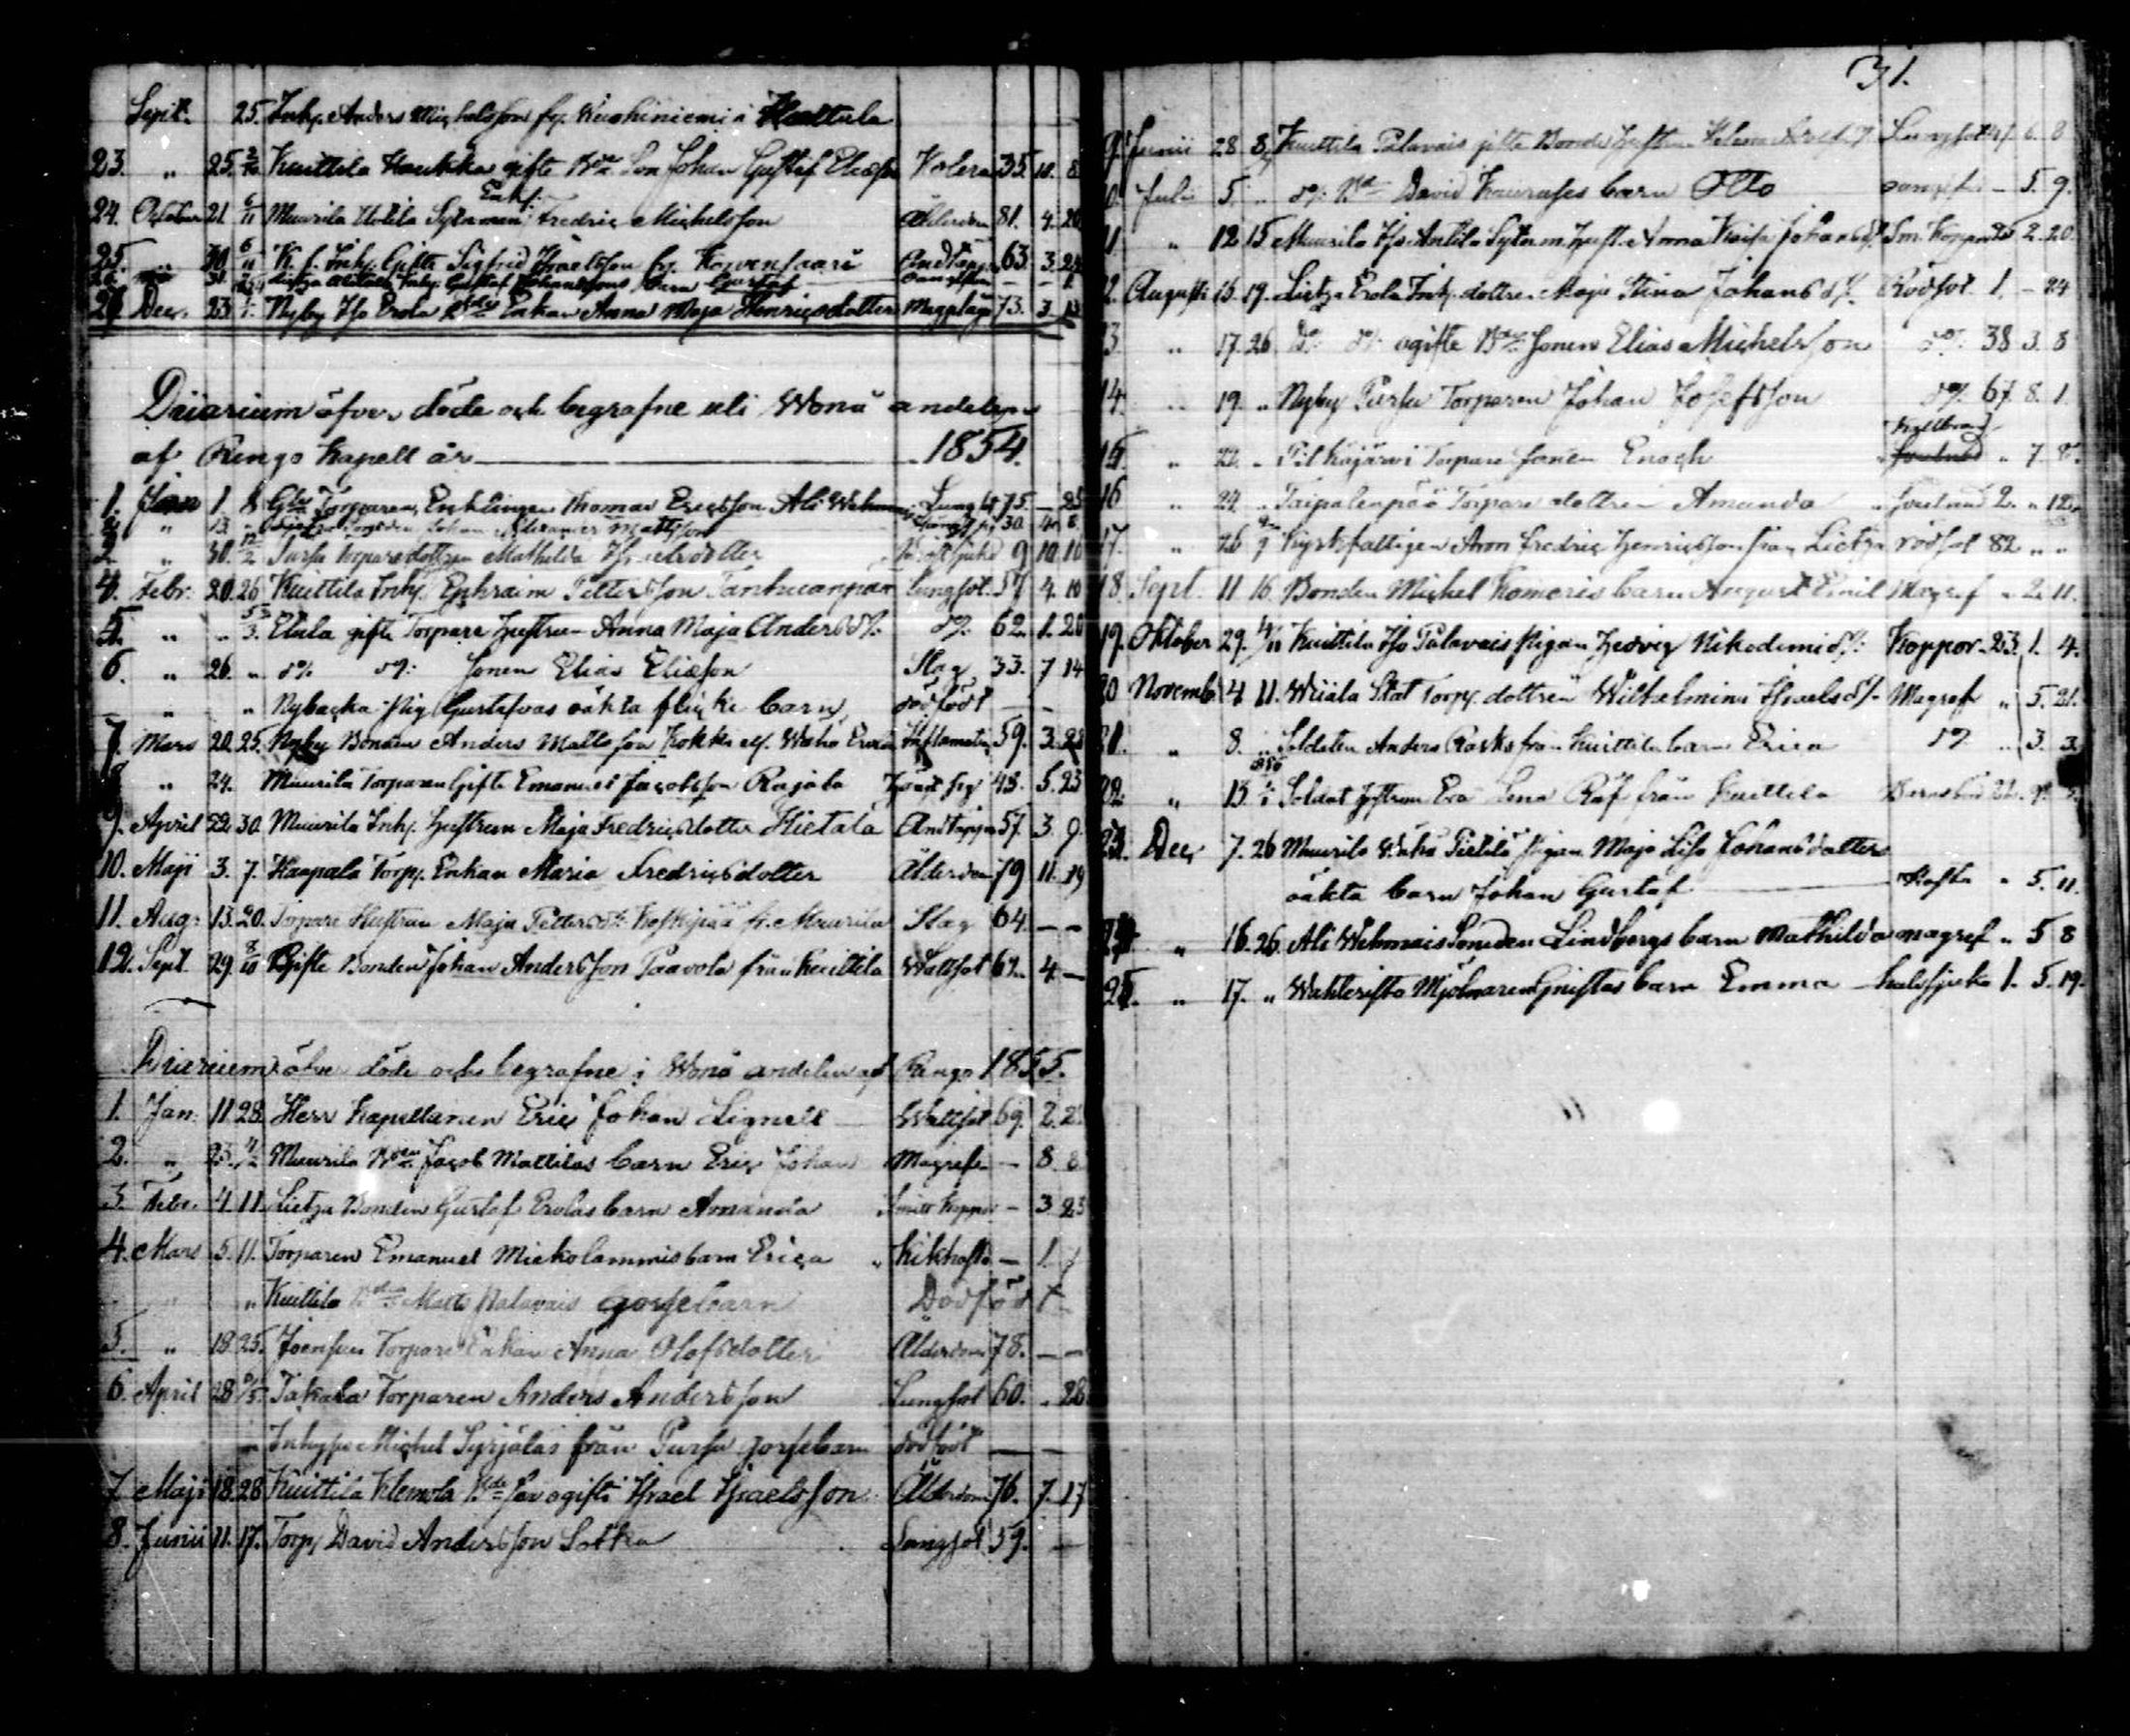 Sept. 25. Inhy. Anders Michelsson fr. Kuohiniemi i Hattula
23. " 25. 2/10 Kuittila Haukka gifte Bde Son Johan Gustaf Eliæson Kolera 35. 10. 8
24. October 21. 6/11 Muurila Uotila Sytn.man Enkl. Fredric Michelsson Ålderdom 81. 4. 20
25. " 30. 6/11 K. f. Inhy. Gifte Sigfrid Israelsson fr. Korvensaari Andtäppa 63. 3. 24
31. Inhy. Gustaf Johanssons barn Gustaf
27 Dec. 23. Nyby Iso Erola Bde Enkan Anna Maja Henricsdotter Magplåga 73. 3. 13
Diarium öfver döde och begrafne uti Wonå andelen
af Ringo Kapell år 1854.
1. Jan 1. 8 Torparen Enklingen Thomas Ericsson Ali Wehmais Lung 75. — 25
2. " 13. Johan Alexander Mattsson 30. 4. 8.
3. " 30. 12/2 Pursu Torparedottren Mathilda Israelsdotter 9 10 16
4. Febr. 20. 26 Kuittila Inhy. Ephraim Pettersson Tanhuanpää Lungsot. 57 4. 10
5. " " 5/3. Elula gifte Torpare hustrun Anna Maja Anders dr. do. 62. 1. 20
6. " 26. " do. do. Sonen Elias Eliæson Slag 33. 7 14
" " Nybacka pig. Gustafvas oäkta flicke barn dödfödt — —
7. Mars 20. 25. Nyby Bonden Anders Mattsson Kokki elf. Wähä Erola Inflamation 59. 3. 28
8 " 24. Muurila Torparen Gifte Emanuel Jacobsson Rajala 48. 5. 23
9. April 22. 30. Muurila Inhy. Hustrun Maja Fredricsdotter Hietala Andtäppa 57. 3. 9.
10. Maji 3. 7. Haapala Torp. Enkan Maria Fredricsdotter Ålderdom 79 11. 19
11. Aug. 13. 20. Torpare Hustrun Maja Petters dr. Koskipää fr. Muurila Slag 64. — —
12. Sept. 29. 8/10 Gifte Bonden Johan Andersson Paavola från Kuittila Wattsot 67. 4. —
Diarium öfver döde och begrafne i Wonå andelen af Ringo 1855.
1. Jan. 11. 28. Herr Kapellanen Eric Johan Lignell Wattsot 69. 2. 2.
2. " 23. 4/2 Muurila Bden Jacob Mattilas barn Eric Johan Magref — 8. 8
3. Febr. 4. 11. Lietza Bonden Gustaf Erolas barn Amanda Smitt koppor — 3. 23
4. Mars 5. 11. Torparen Emanuel Miekolammis barn Erica Kikhosta — 1.
" Kuittila Matts Palavais gossebarn Dödfödt —
5. " 18. 25. Joensuu Torpare Enkan Anna Olofsdotter Ålderdom 78. — —
6. April 28. 6/5. Takala Torparen Anders Andersson Lungsot 60. . 26
Inhyses Michel Syrjäläs från Pursu gossebarn dödfödt — —
7. Maji 18. 28 Kuittila Klemola Bde Son ogifte Israel Israelsson Ålderdom 76. 7. 17
8. Junii 11. 17. Torp. David Andersson Sotka Lungsot 59. —
31.
9. Junii 28 8/7 Kuittila Palavais gifte Bonde hustrun Helena Lungsot 6. 8
10. Juli 5. " do. Bde David Haurases barn Otto — 5. 9.
11 " 12 15 Muurila Iso Antila Sytn. m. hust. Anna Kaisa Johans dr. Sm. koppor 25 2. 20.
12. Augusti 15. 19. Lietza Erola Inhy. dottren Maja Stina Johans dr. Rödsot 1. — 24
13. " 17. 26. Do. do. ogifte Bde Sonen Elias Michelsson do. 38 3. 8
14. " 19. " Nyby Pursu Torparen Johan Josefsson do. 67. 8. 1.
15. " 22. " Pitkäjärvi Torpare sonen Enoch Kallbrand " 7. 8.
16 " 24. " Taipalenpää Torpare dottren Amanda 2. " 12.
17. " 26 Kyrkfattigen Aron Fredric Henricsson från Lietza rödsot 82 " "
18. Sept. 11 16. Bonden Michel Komeris barn August Emil Magref " 2. 11.
19. Oktober 29. 4/11 Kuittila Iso Palavais pigan Hedvig Nikodemi dr. Koppor 23. 1. 4.
20 Novemb. 4 11. Wiiala Stat Torp. dottren Wilhelmina Israels dr. Magref " 5. 21.
21. " 8. " Soldaten Anders Rasks från Kuittila barn Erica do. " 3. 3.
22. " 13. Soldat hustrun Eva Lena Räf från Kuittila
23. Dec. 7. 26 Muurila Wähä Pietilä pigan Maja Lisa Johansdotter
oäkta barn Johan Gustaf Hosta " 5. 11.
24. " 16. 26. Ali Wehmais Smeden Lindbergs barn Mathilda magref " 5 8
25. " 17. " Wahteristo Mjölnaren Gnistas barn Emma halssjuka 1. 5. 19.